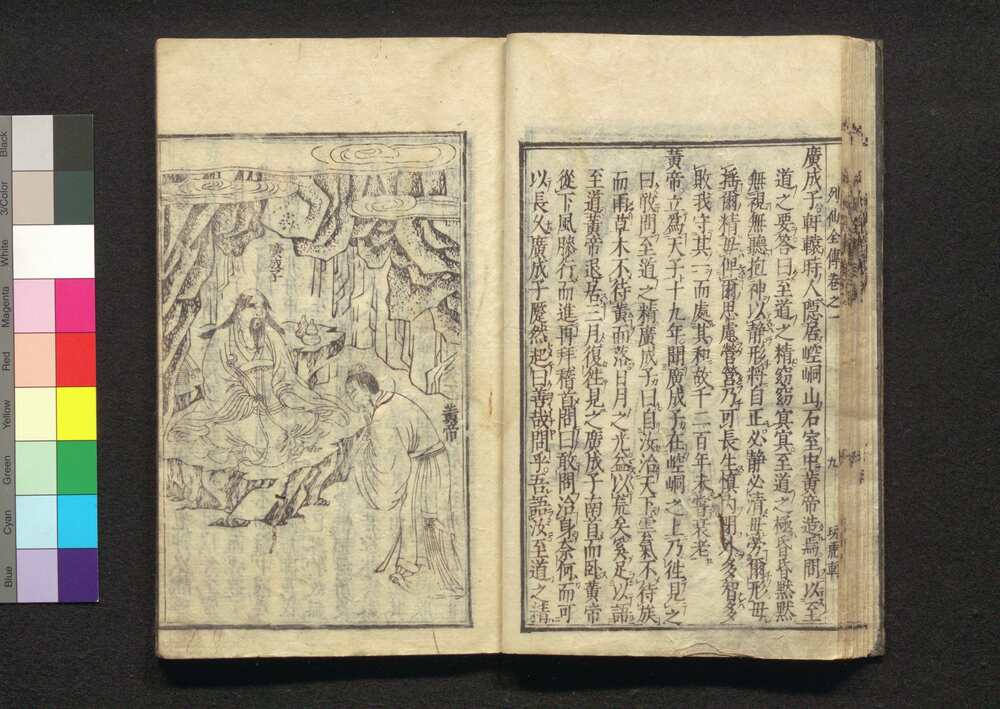 廣成子軒轅時人隱居崆峒山石室中黃帝造焉問以至
道之要答曰至道之精窈窈冥冥至道之極昏昏默默
無視無聽抱神以靜形將自正必靜必清毋勞爾形毋
搖爾精毋俾爾思慮營營乃可長生慎內閉外多智多
敗我守其一而處其和故千二百年未嘗衰老
黃帝立為天子十九年聞廣成子在崆峒之上乃往見之
曰敢問至道之精廣成子曰自汝治天下雲氣不待族
而雨草木不待黃而落日月之光益以荒矣奚足以語
至道黃帝退居三月復往見之廣成子南首而臥黃帝
從下風膝行而進再拜稽首問曰敢問治身奈何而可
以長久廣成子蹷然起曰善哉問乎吾語汝至道之精
列仙全傳卷之一
九
玩虎軒
廣成子
黃帝
Black
3/Color
White
Magenta
Red
Yellow
Green
Cyan
Blue